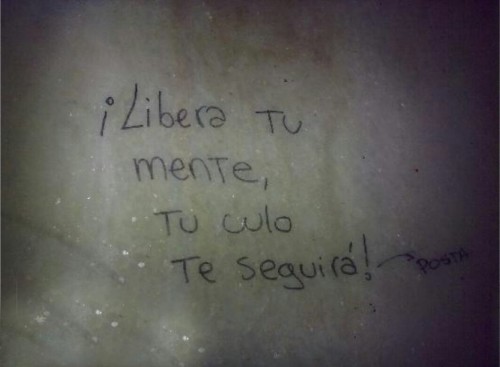 ¡Libera Tu
mente,
Tu culo
Te seguirá! → POSTA